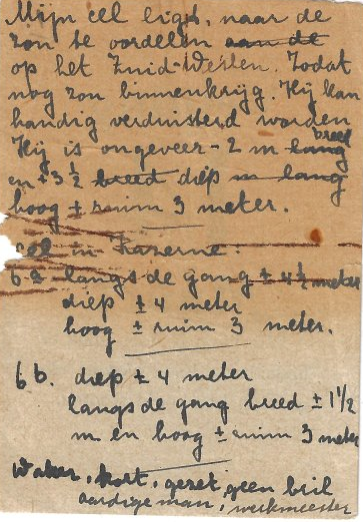 Mijn cel ligt, naar de
zon te oordelen aan de
op het Zuid-Westen. Zodat
nog zon binnenkrijg. Hij kan
handig verduisterd worden
Hij is ongeveer - 2 m lang breed
en ± 3 1/2 breed diep m lang
hoog ± ruim 3 meter.
cel in Kazerne.
6a langs de gang ± 4 1/2 meter
diep ± 4 meter
hoog ± ruim 3 meter.
6 b. diep ± 4 meter
langs de gang breed ± 1 1/2
m en hoog ± ruim 3 meter
kort, geen bril
aardige man, werkmeester